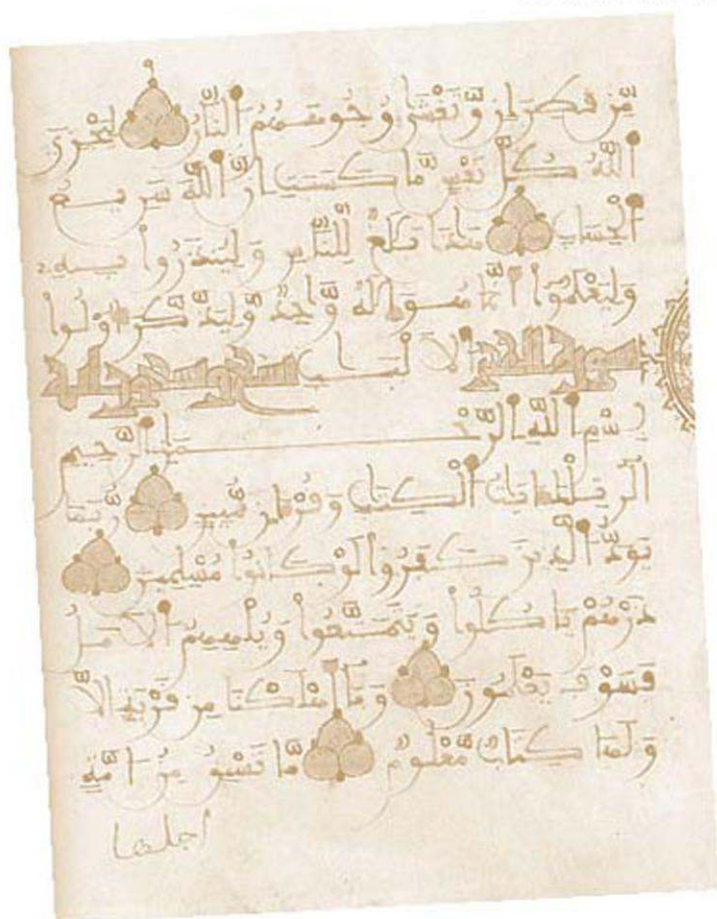 مِّن قَطِرَانٍ وَّتَغْشَىٰ وُجُوهَهُمُ النَّارُ لِيَجْزِيَ
اللَّهُ كُلَّ نَفْسٍ مَّا كَسَبَتْ إِنَّ اللَّهَ سَرِيعُ
الْحِسَابِ هَٰذَا بَلَٰغٌ لِّلنَّاسِ وَلِيُنذَرُوا بِهِ
وَلِيَعْلَمُوا أَنَّمَا هُوَ إِلَٰهٌ وَّاحِدٌ وَّلِيَذَّكَّرَ أُولُوا
سورة الحجر الْأَلْبَٰبِ
بِسْمِ اللَّهِ الرَّحْمَٰنِ الرَّحِيمِ
الر تِلْكَ ءَايَٰتُ الْكِتَٰبِ وَقُرْءَانٍ مُّبِينٍ رُّبَمَا
يَوَدُّ الَّذِينَ كَفَرُوا لَوْ كَانُوا مُسْلِمِينَ
ذَرْهُمْ يَاكُلُوا وَيَتَمَتَّعُوا وَيُلْهِهِمُ الْأَمَلُ
فَسَوْفَ يَعْلَمُونَ وَمَا أَهْلَكْنَا مِن قَرْيَةٍ إِلَّا
وَلَهَا كِتَابٌ مَّعْلُومٌ مَّا تَسْبِقُ مِنْ أُمَّةٍ
اجلها